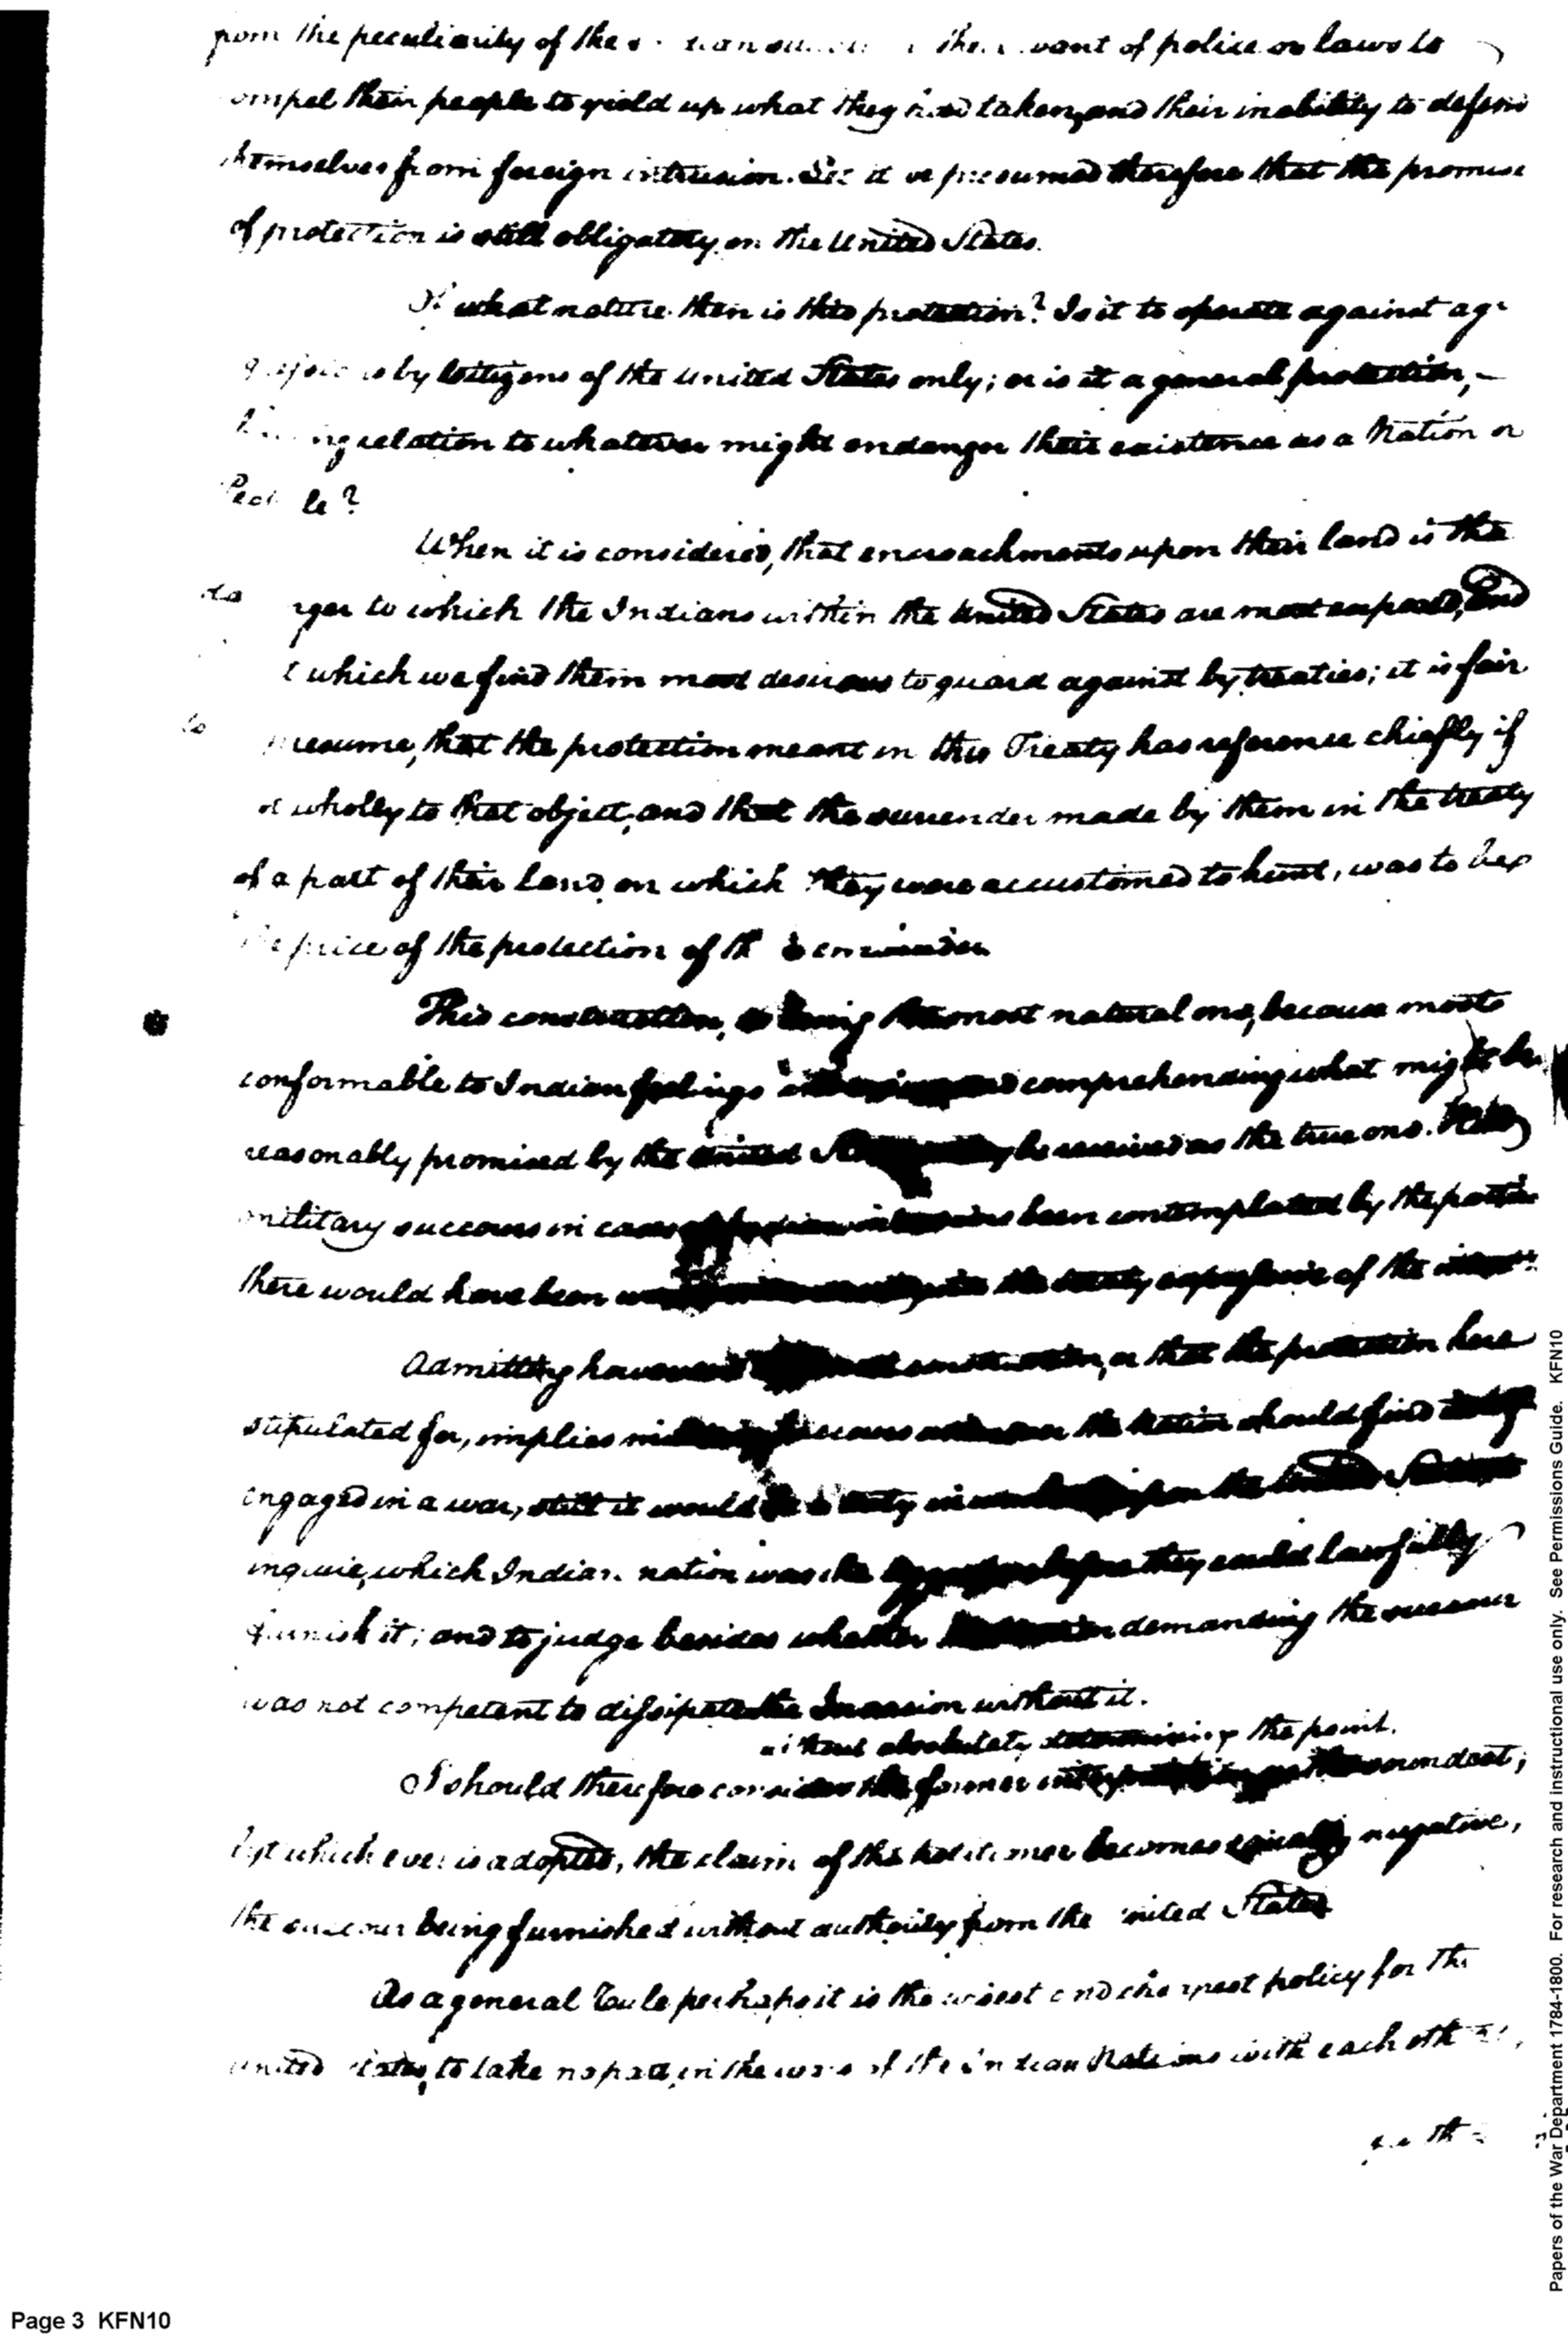 from the peculiarity of the want of police or laws to
compel their people to yield up what they had taken, and their inability to defend
themselves from foreign intrusion. it be presumed therefore that the promise
of protection is still obligatory on the United States.
Of what nature then is this protection? Is it to operate against ag
by Citizens of the United States only; or is it a general protection, -
relation to whatever might endanger their existence as a Nation or
People?
When it is considered, that encroachments upon their land is the
danger to which the Indians within the United States are most exposed, and
which we find them most desirous to guard against by treaties; it is fair
to presume, that the protection meant in this Treaty has reference chiefly if
not wholly to that object, and that the surrender made by them in the treaty
of a part of their land on which they were accustomed to hunt, was to be
the price of the protection of the remainder
This construction, as being the most natural one, because most
conformable to Indian feelings comprehending what might be
reasonably promised by the United States be received as the true one. Had
military succours in cases of been contemplated by the parties
there would have been the treaty expressive of the
Admitting however construction, or that the protection here
stipulated for, implies military succours the Nation should find itself
engaged in a war, still it would be a duty incumbent upon the United States to
inquire, which Indian nation was the aggressor before they could lawfully
furnish it; and to judge besides whether the Nation demanding the succour
was not competent to dissipate the Invasion without it.
without absolutely determining the point.
I should therefore consider the former interpretation as the soundest;
but which ever is adopted, the claim of the becomes equally negative,
the succour being furnished without authority from the United States
As a general Rule perhaps it is the wisest and cheapest policy for the
United States, to take no part in the wars of the Indian Nations with each other,
Papers of the War Department 1784-1800. For research and instructional use only. See Permissions Guide. KFN10
Page 3 KFN10